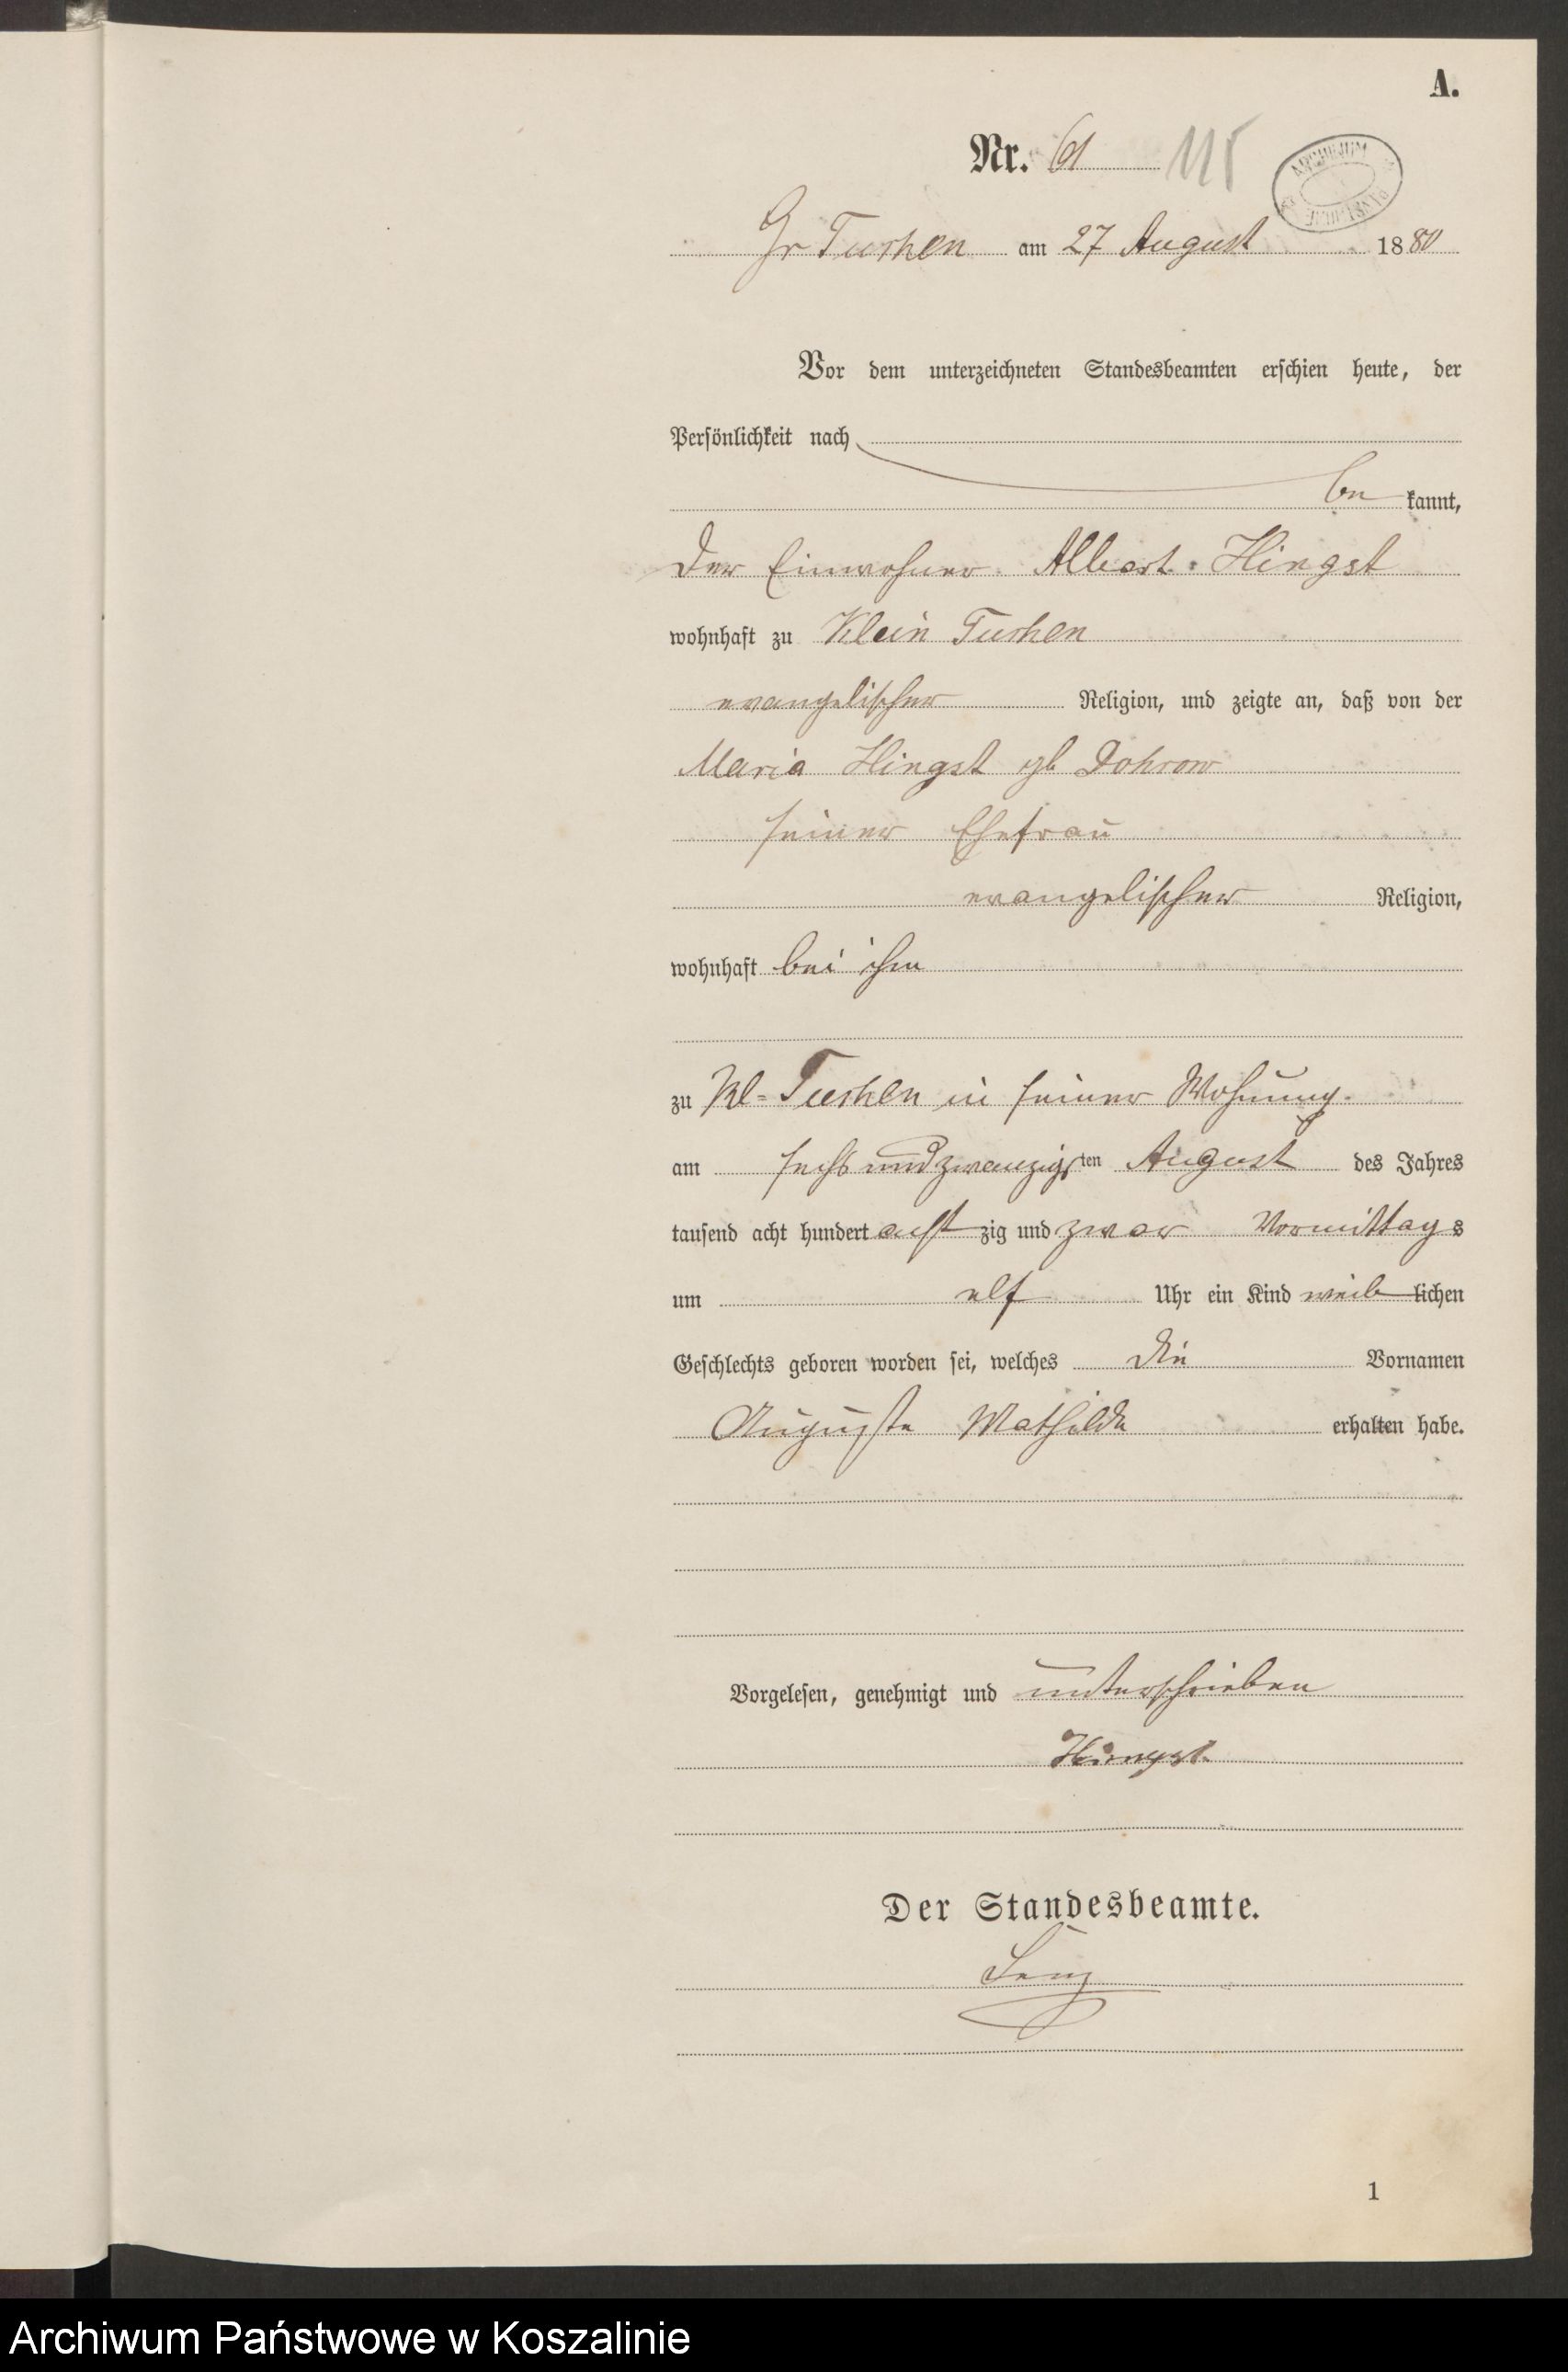 A.
Nr. 61 115
ARCHIWUM PAŃSTWOWE
Gr Tuchen am 27 August 1880
Vor dem unterzeichneten Standesbeamten erschien heute, der
Persönlichkeit nach
be kannt,
der Einwohner Albert Hingst
wohnhaft zu Klein Tuchen
evangelischer Religion, und zeigte an, daß von der
Maria Hingst gb
seiner Ehefrau
evangelischer Religion,
wohnhaft bei ihm
zu Kl=Tuchen in seiner Wohnung.
am sechs und zwanzigsten August des Jahres
tausend acht hundert acht zig und zwar Vormittags
um elf Uhr ein Kind weiblichen
Geschlechts geboren worden sei, welches die Vornamen
Auguste Mathilde erhalten habe.
Vorgelesen, genehmigt und unterschrieben
Hingst
Der Standesbeamte.
1
Archiwum Państwowe w Koszalinie